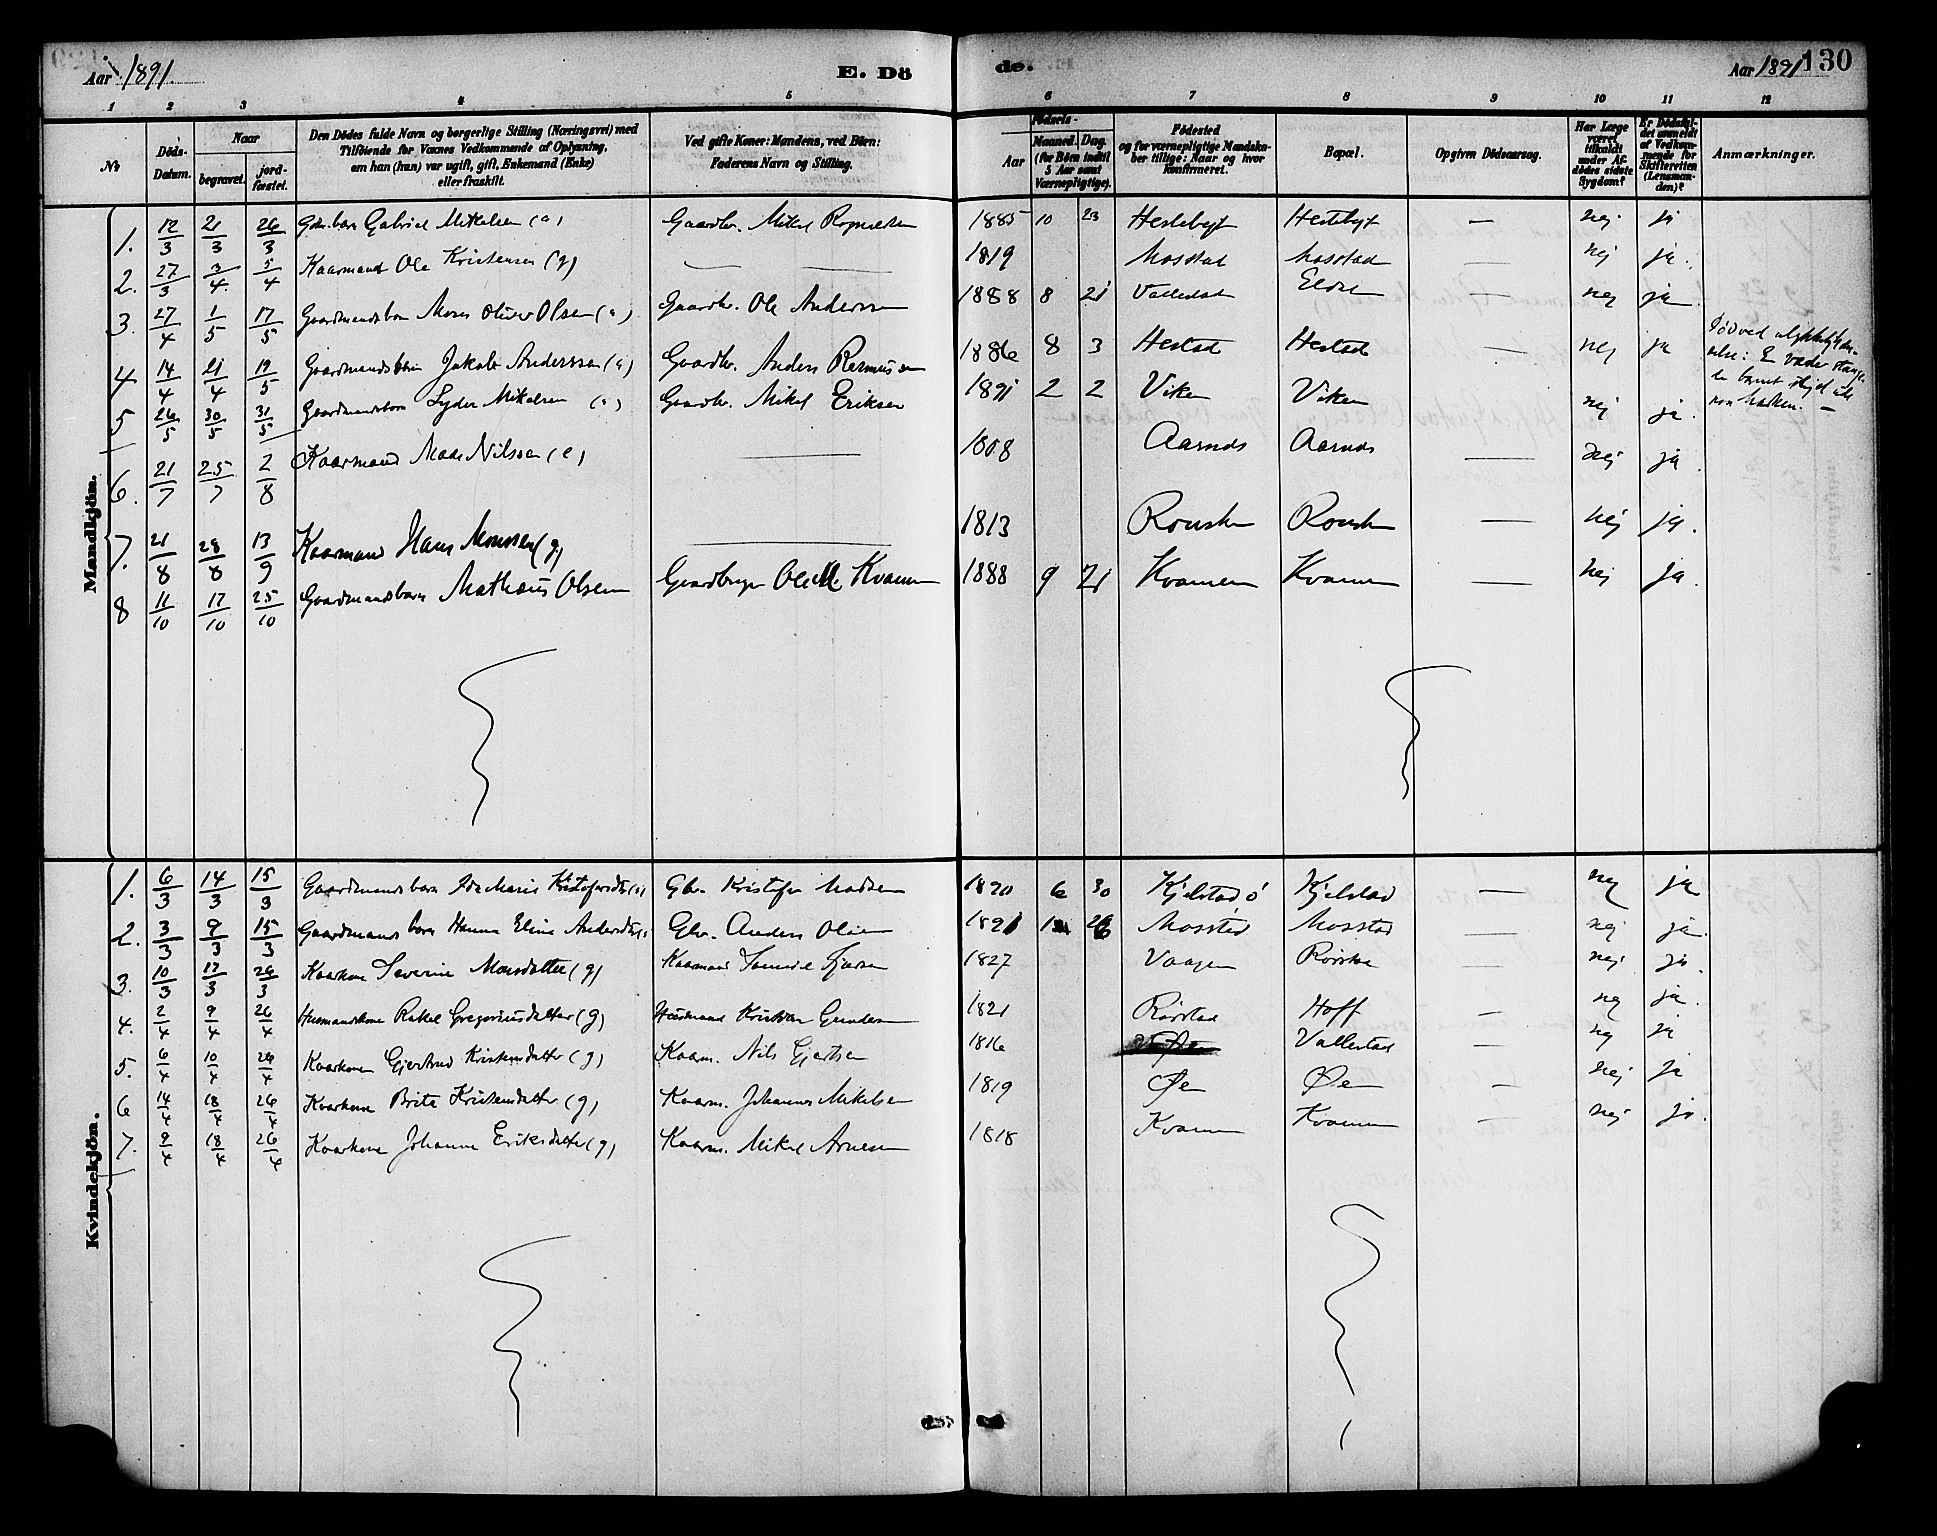 Aar 1891. E. Dö
de. Aar 1891 130
1 2 3 4 5 6 7 8 9 10 11 12
№
Döds-Datum.
Naar
begravet.
jord-fæstet.
Den Dödes fulde Navn og borgerlige Stilling (Næringsvei) med
Tilföiende for Voxnes Vedkommende af Oplysning,
om han (hun) var ugift, gift, Enkemand (Enke)
eller fraskilt.
Ved gifte Koner: Mandens, ved Börn:
Faderens Navn og Stilling.
Födsels-
Aar
Maaned. Dag.
(for Börn indtil
5 Aar samt
Værnepligtige).
Fødested
og for værnepligtige Mandska-
ber tillige: Naar og hvor
konfirmeret.
Bopæl.
Opgiven Dödsaarsag.
Har Læge
været
tilkaldt
under Af-
dødes sidste
Sygdom?
Er Dödsfal-
det anmeldt
af Vedkom-
mende for
Skifteretten
(Lensman-
den)?
Anmærkninger.
Mandkjön.
1. 12/3 21/3 26/3 Gabriel Mikelsen Gaardbr. Mikel 1885 10 23 Hestebeyt Hestebeyt — nej ja
2. 27/3 3/4 5/4 Kaarmand Ole Kristensen (g) — 1819 Mosstad Mosstad — nej ja.
3. 27/4 1/5 17/5 Gaardmandsbarn Moses Oliver Olsen Gaardbr. Ole Anderssen 1888 8 21 Vallestad — nej ja
4 14/4 21/4 19/5 Gaardmandsbarn Jakob Anderssen Gaardbr. Anders Rasmussen 1886 8 3 Hestad Hestad — nej ja
5 26/5 30/5 31/5 Gaardmandsbarn Lyder Mikelsen Gaardbr. Mikel Eriksen 1891 2 2 Viken Viken nej ja.
6. 21/7 25/7 2/8 Kaarmand Mads Nilssen (e) — 1808 Aarnds Aarnds — nej ja
7. 21/8 28/8 13/9 Kaarmand Hans Monssen (g) — 1813 — nej ja.
8 11/10 17/10 25/10 Gaardmandsbarn Mathæus Olsen Gaardbruger Ole Kvamen 1888 9 21 Kvamen Kvamen — nej ja.
Kvindekjön.
1. 6/3 14/3 15/3 Gaardmandsbarn Ida Marie Kristofersdtr Gbr. Kristofer Madsen 1890 6 30 Kjelstad Kjelstad — nej ja
2. 3/3 9/3 15/3 Gaardmands barn Hanna Eline Andersdtr Gbr. Anders Olsen 1891 26 Mosstad Mosstad — nej ja.
3. 10/3 17/3 26/3 Kaarkone Severine Monsdatter (g) Kaarmand 1827 Vaagen Rørstad — nej ja.
4. 2/4 9/4 26/4 Husmandskone Rakel Gregoriusdatter (g) Husmand Kristian 1821 Rørstad Hoff — nej ja.
5. 6/4 10/4 26/4 Kaarkone Gjertrud Kristensdatter (g) Kaarm. Nils Gjertsen 1816 Vallestad — nej ja
6 14/4 18/4 26/4 Kaarkone Brita Kristensdatter (g) Kaarm. Johannes Mikelsen 1819 Øen Øen — nej ja
7. 9/4 18/4 26/4 Kaarkone Johanne Eriksdatter (g) Kaarm. Mikel Arnesen 1818 Kvamen Kvamen — nej ja.